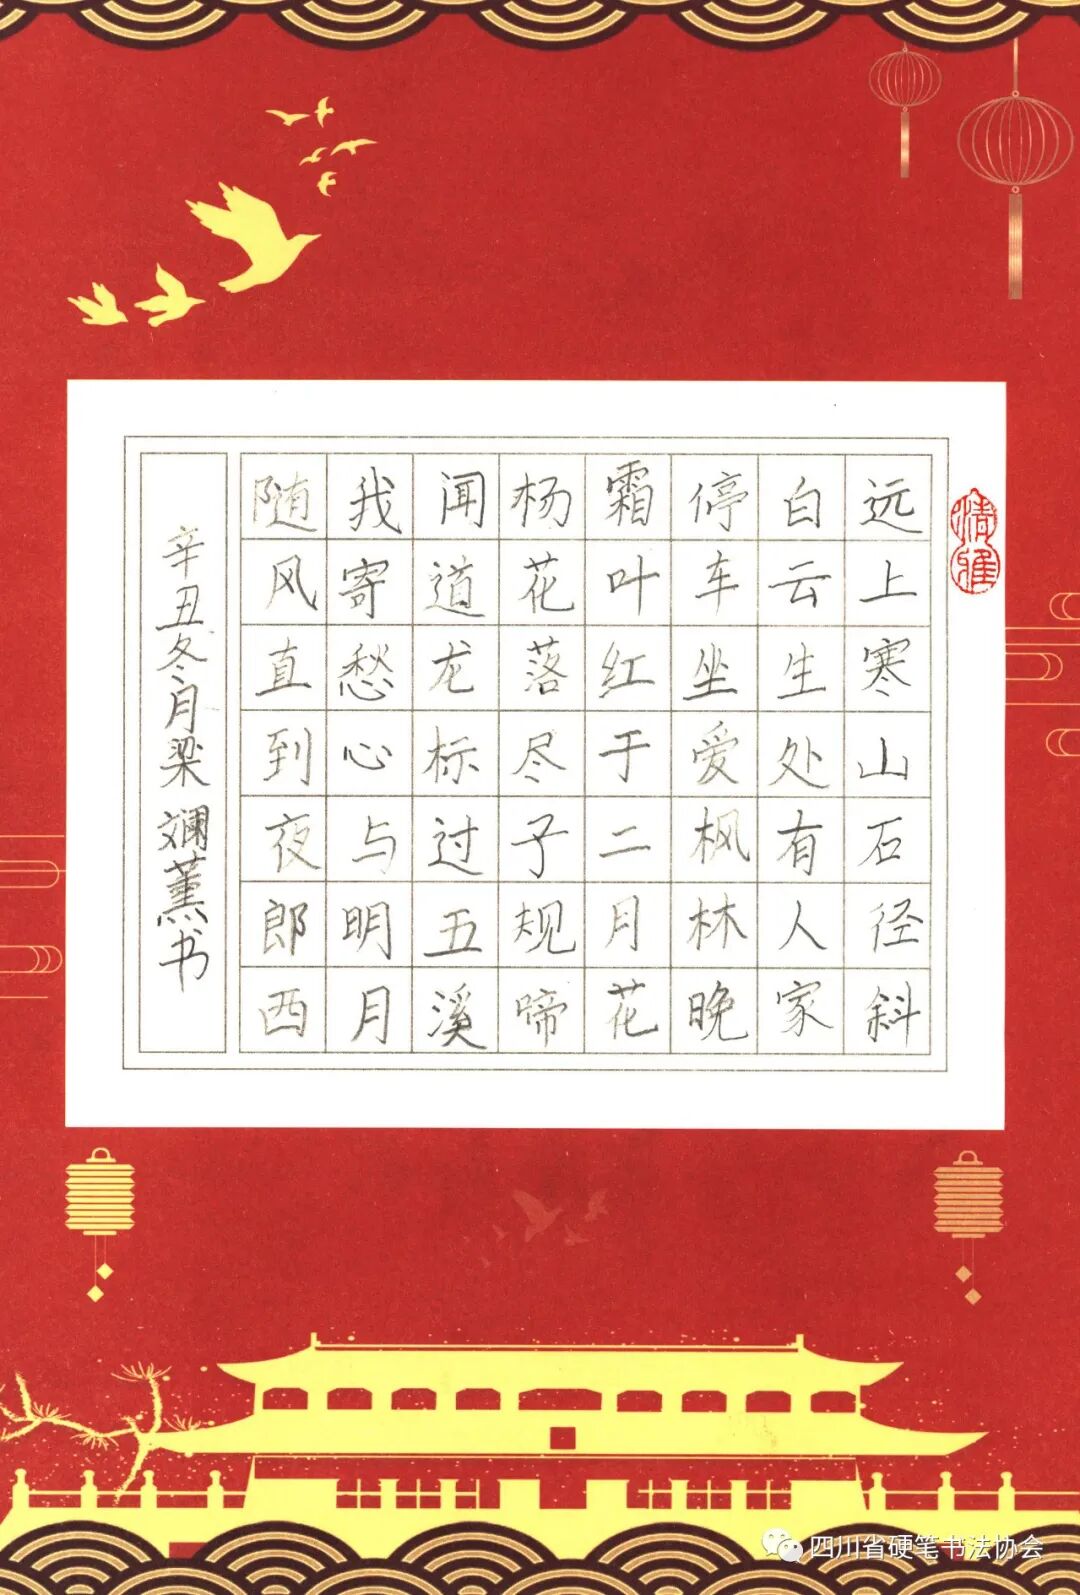 远上寒山石径斜
白云生处有人家
停车坐爱枫林晚
霜叶红于二月花
杨花落尽子规啼
闻道龙标过五溪
我寄愁心与明月
随风直到夜郎西
辛丑冬月梁斓薰书
清雅
四川省硬笔书法协会